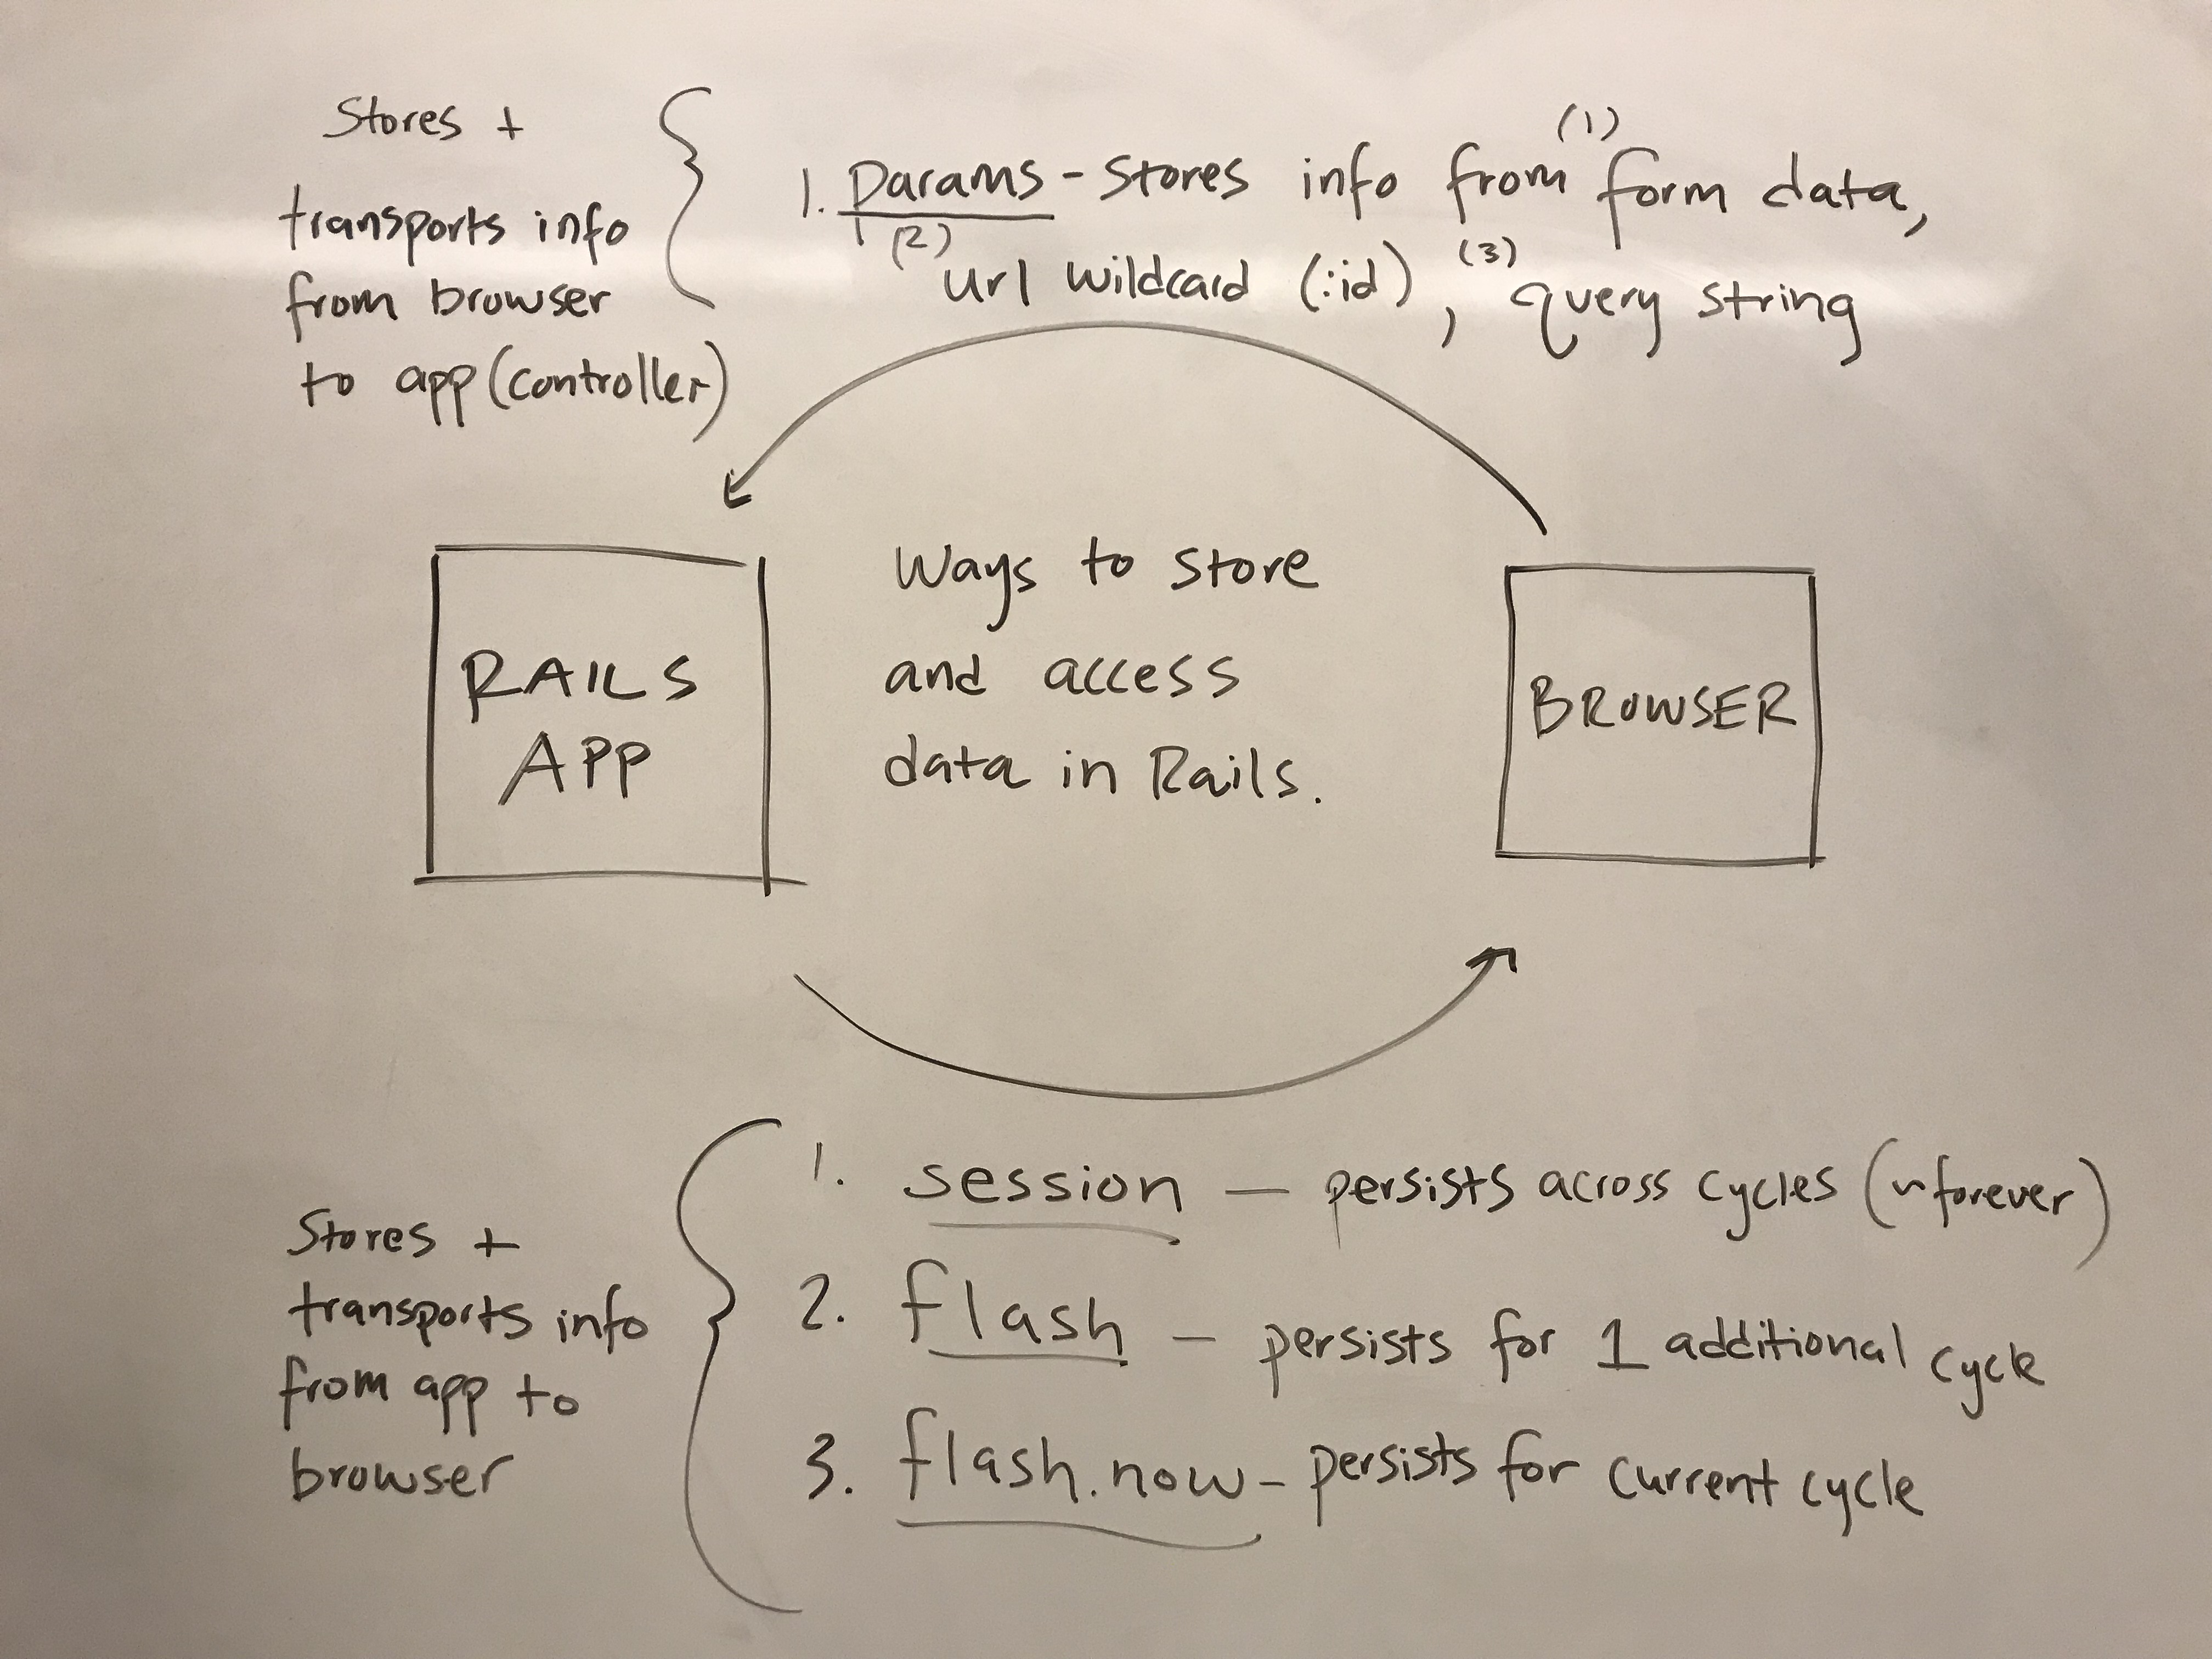 Stores +
transports info
from browser
to app (controller)
1. params - stores info from (1) form data,
(2) url wildcard (:id), (3) query string
RAILS
APP
Ways to store
and access
data in Rails.
BROWSER
Stores +
transports info
from app to
browser
1. session — persists across cycles (~forever)
2. flash — persists for 1 additional cycle
3. flash.now - persists for current cycle